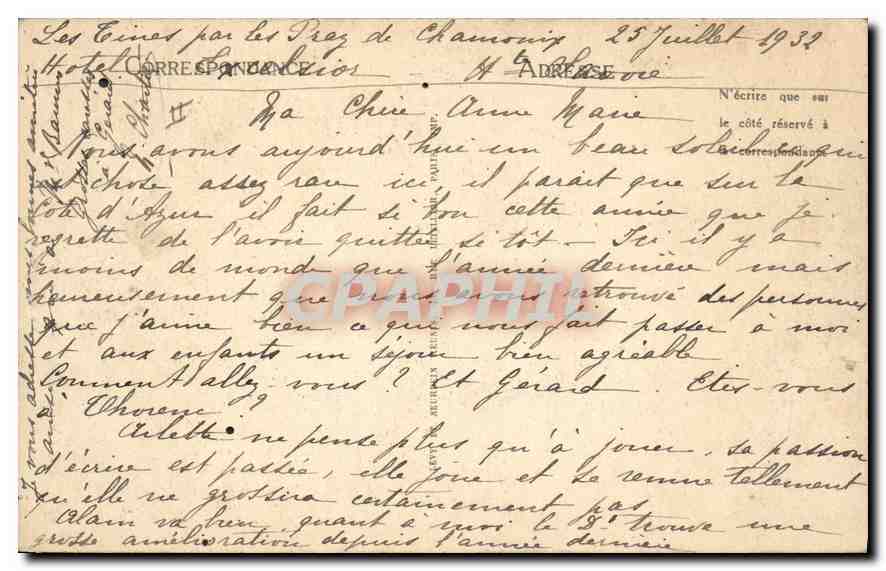 Les Tines par les Praz de Chamonix 25 Juillet 1932
Hotel Excelsior Hte Savoie
CORRESPONDANCE
ADRESSE
N'écrire que sur
le côté réservé à
la correspondance
Ma Chère Anne Marie
Nous avons aujourd'hui un beau soleil ce qui
est chose assez rare ici, il parait que sur la
Côte d'Azur il fait si bon cette année que je
regrette de l'avoir quittée si tôt - Ici il y a
moins de monde que l'année dernière mais
heureusement que nous avons retrouvé des personnes
que j'aime bien ce qui nous fait passer à moi
et aux enfants un séjour bien agréable
Comment allez-vous ? Et Gérard Etes-vous
à Thorenc ?
Arlette ne pense plus qu'à jouer, sa passion
d'écrire est passée, elle joue et se remue tellement
qu'elle ne grossira certainement pas
Alain va bien, quant à moi le Dr trouve une
grosse amélioration depuis l'année dernière
Je vous adresse mes bonnes amitiés
ainsi
à Gérard
LEVY ET NEURDEIN REUNIS PARIS IMP.
CPAPHIL